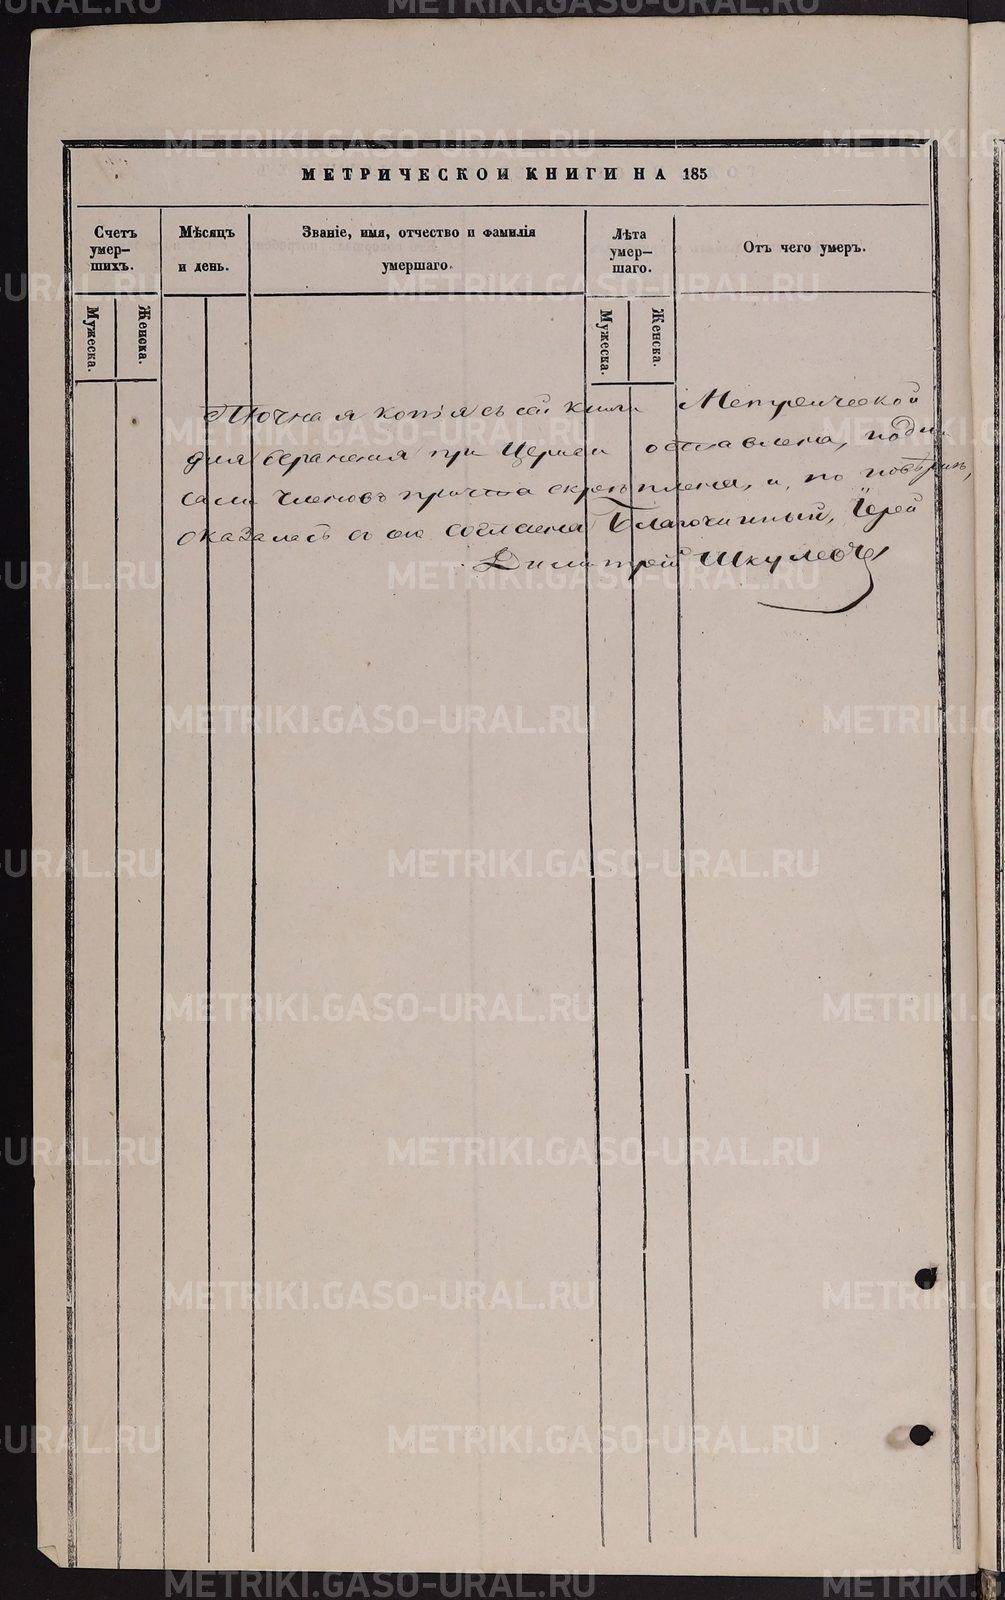 МЕТРИЧЕСКОЙ КНИГИ НА 185
Счетъ умер-шихъ.
Мѣсяцъ и день.
Званіе, имя, отчество и фамилія умершаго.
Лѣта умер-шаго.
Отъ чего умеръ.
Мужеска.
Женска.
Мужеска.
Женска.
Точная копія съ сей книги Метрической
для храненія при Церкви оставлена, подпи
сали членовъ причта скрѣплена, и, по повѣркѣ,
оказалась съ ею согласна Благочинный, Іерей
Димитрій
METRIKI.GASO-URAL.RU